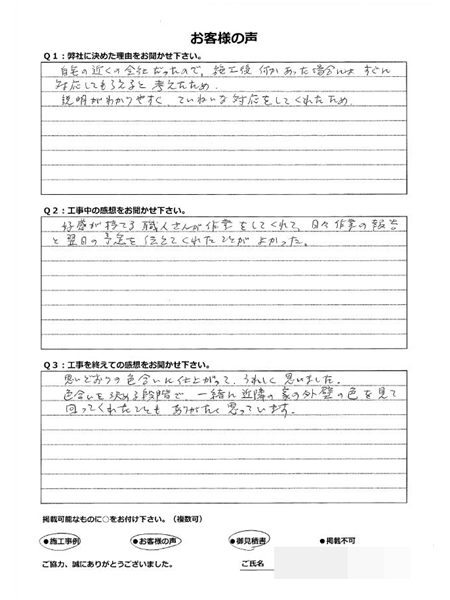 お客様の声
Q1：弊社に決めた理由をお聞かせ下さい。
自宅の近くの会社だったので、施工後 何かあった場合には すぐに
対応してもらえると 考えたため
説明がわかりやすく、ていねいな対応をしてくれたため
Q2：工事中の感想をお聞かせ下さい。
好感が持てる 職人さんが 作業をしてくれて、日々作業の報告
と翌日の予定を 伝えてくれたことが よかった。
Q3：工事を終えての感想をお聞かせ下さい。
思いどおりの色合いに仕上がって、うれしく思いました。
色合いを決める段階で、一緒に近隣の家の外壁の色を見て
回ってくれたことも ありがたく思っています。
掲載可能なものに○をお付け下さい。（複数可）
●施工事例 ●お客様の声 ●御見積書 ●掲載不可
ご協力、誠にありがとうございました。 ご氏名